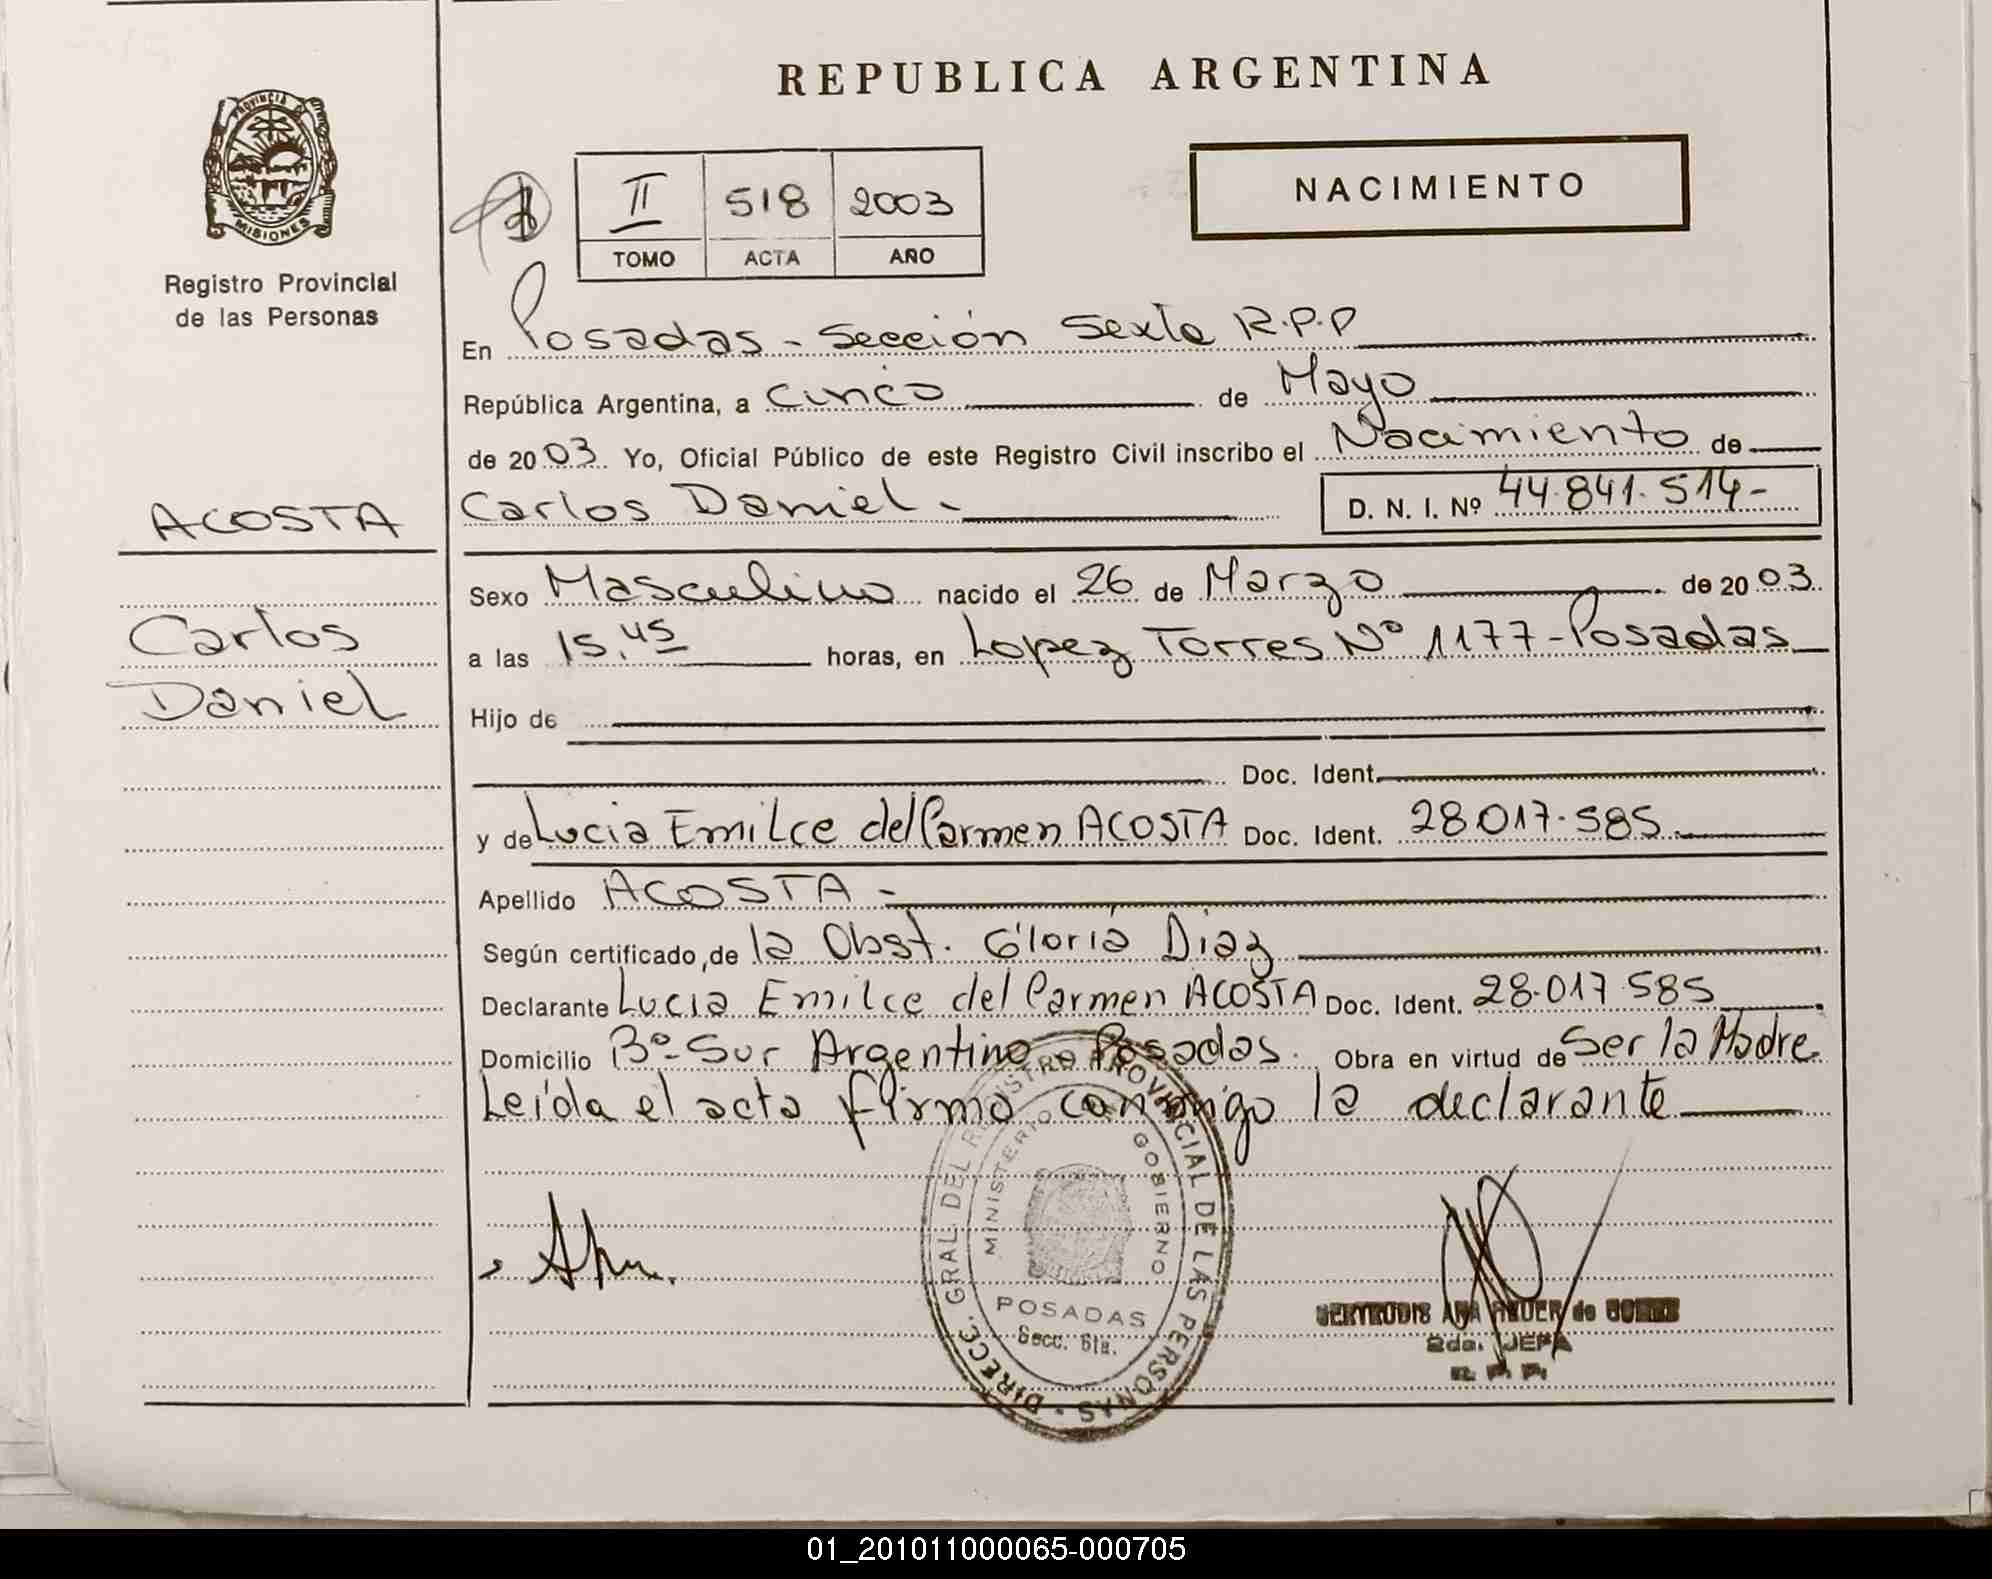 REPUBLICA ARGENTINA
PROVINCIA DE
MISIONES
Registro Provincial
de las Personas
II 518 2003
TOMO ACTA AÑO
NACIMIENTO
En Posadas - Sección Sexta R.P.P
República Argentina, a cinco de Mayo
de 2003. Yo, Oficial Público de este Registro Civil inscribo el Nacimiento de
ACOSTA
Carlos Daniel.-
D. N. I. Nº 44.841.514-
Sexo Masculino nacido el 26 de Marzo de 2003.
Carlos
a las 15,45 horas, en Lopez Torres Nº 1177-Posadas
Daniel
Hijo de
Doc. Ident.
y de Lucia Emilce del Carmen ACOSTA Doc. Ident. 28.017.585.
Apellido ACOSTA -
Según certificado, de la Obst. Gloria Diaz
Declarante Lucia Emilce del Carmen ACOSTA Doc. Ident. 28.017.585
Domicilio Bº-Sur Argentino - Posadas. Obra en virtud de Ser la Madre
Leída el acta firma conmigo la declarante
DIRECC. GRAL. DEL REGISTRO PROVINCIAL DE LAS PERSONAS -
MINISTERIO GOBIERNO
POSADAS
Secc. 6ta.
GERTRUDIS ANA de
2da. JEFA
R. P. P.
01_201011000065-000705